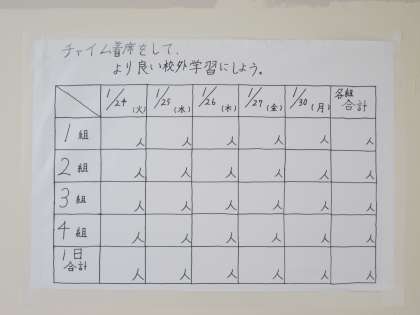 チャイム着席をして、
より良い校外学習にしよう。
1/24(火) 1/25(水) 1/26(木) 1/27(金) 1/30(月) 各組合計
1組 人 人 人 人 人 人
2組 人 人 人 人 人 人
3組 人 人 人 人 人 人
4組 人 人 人 人 人 人
1日合計 人 人 人 人 人 人